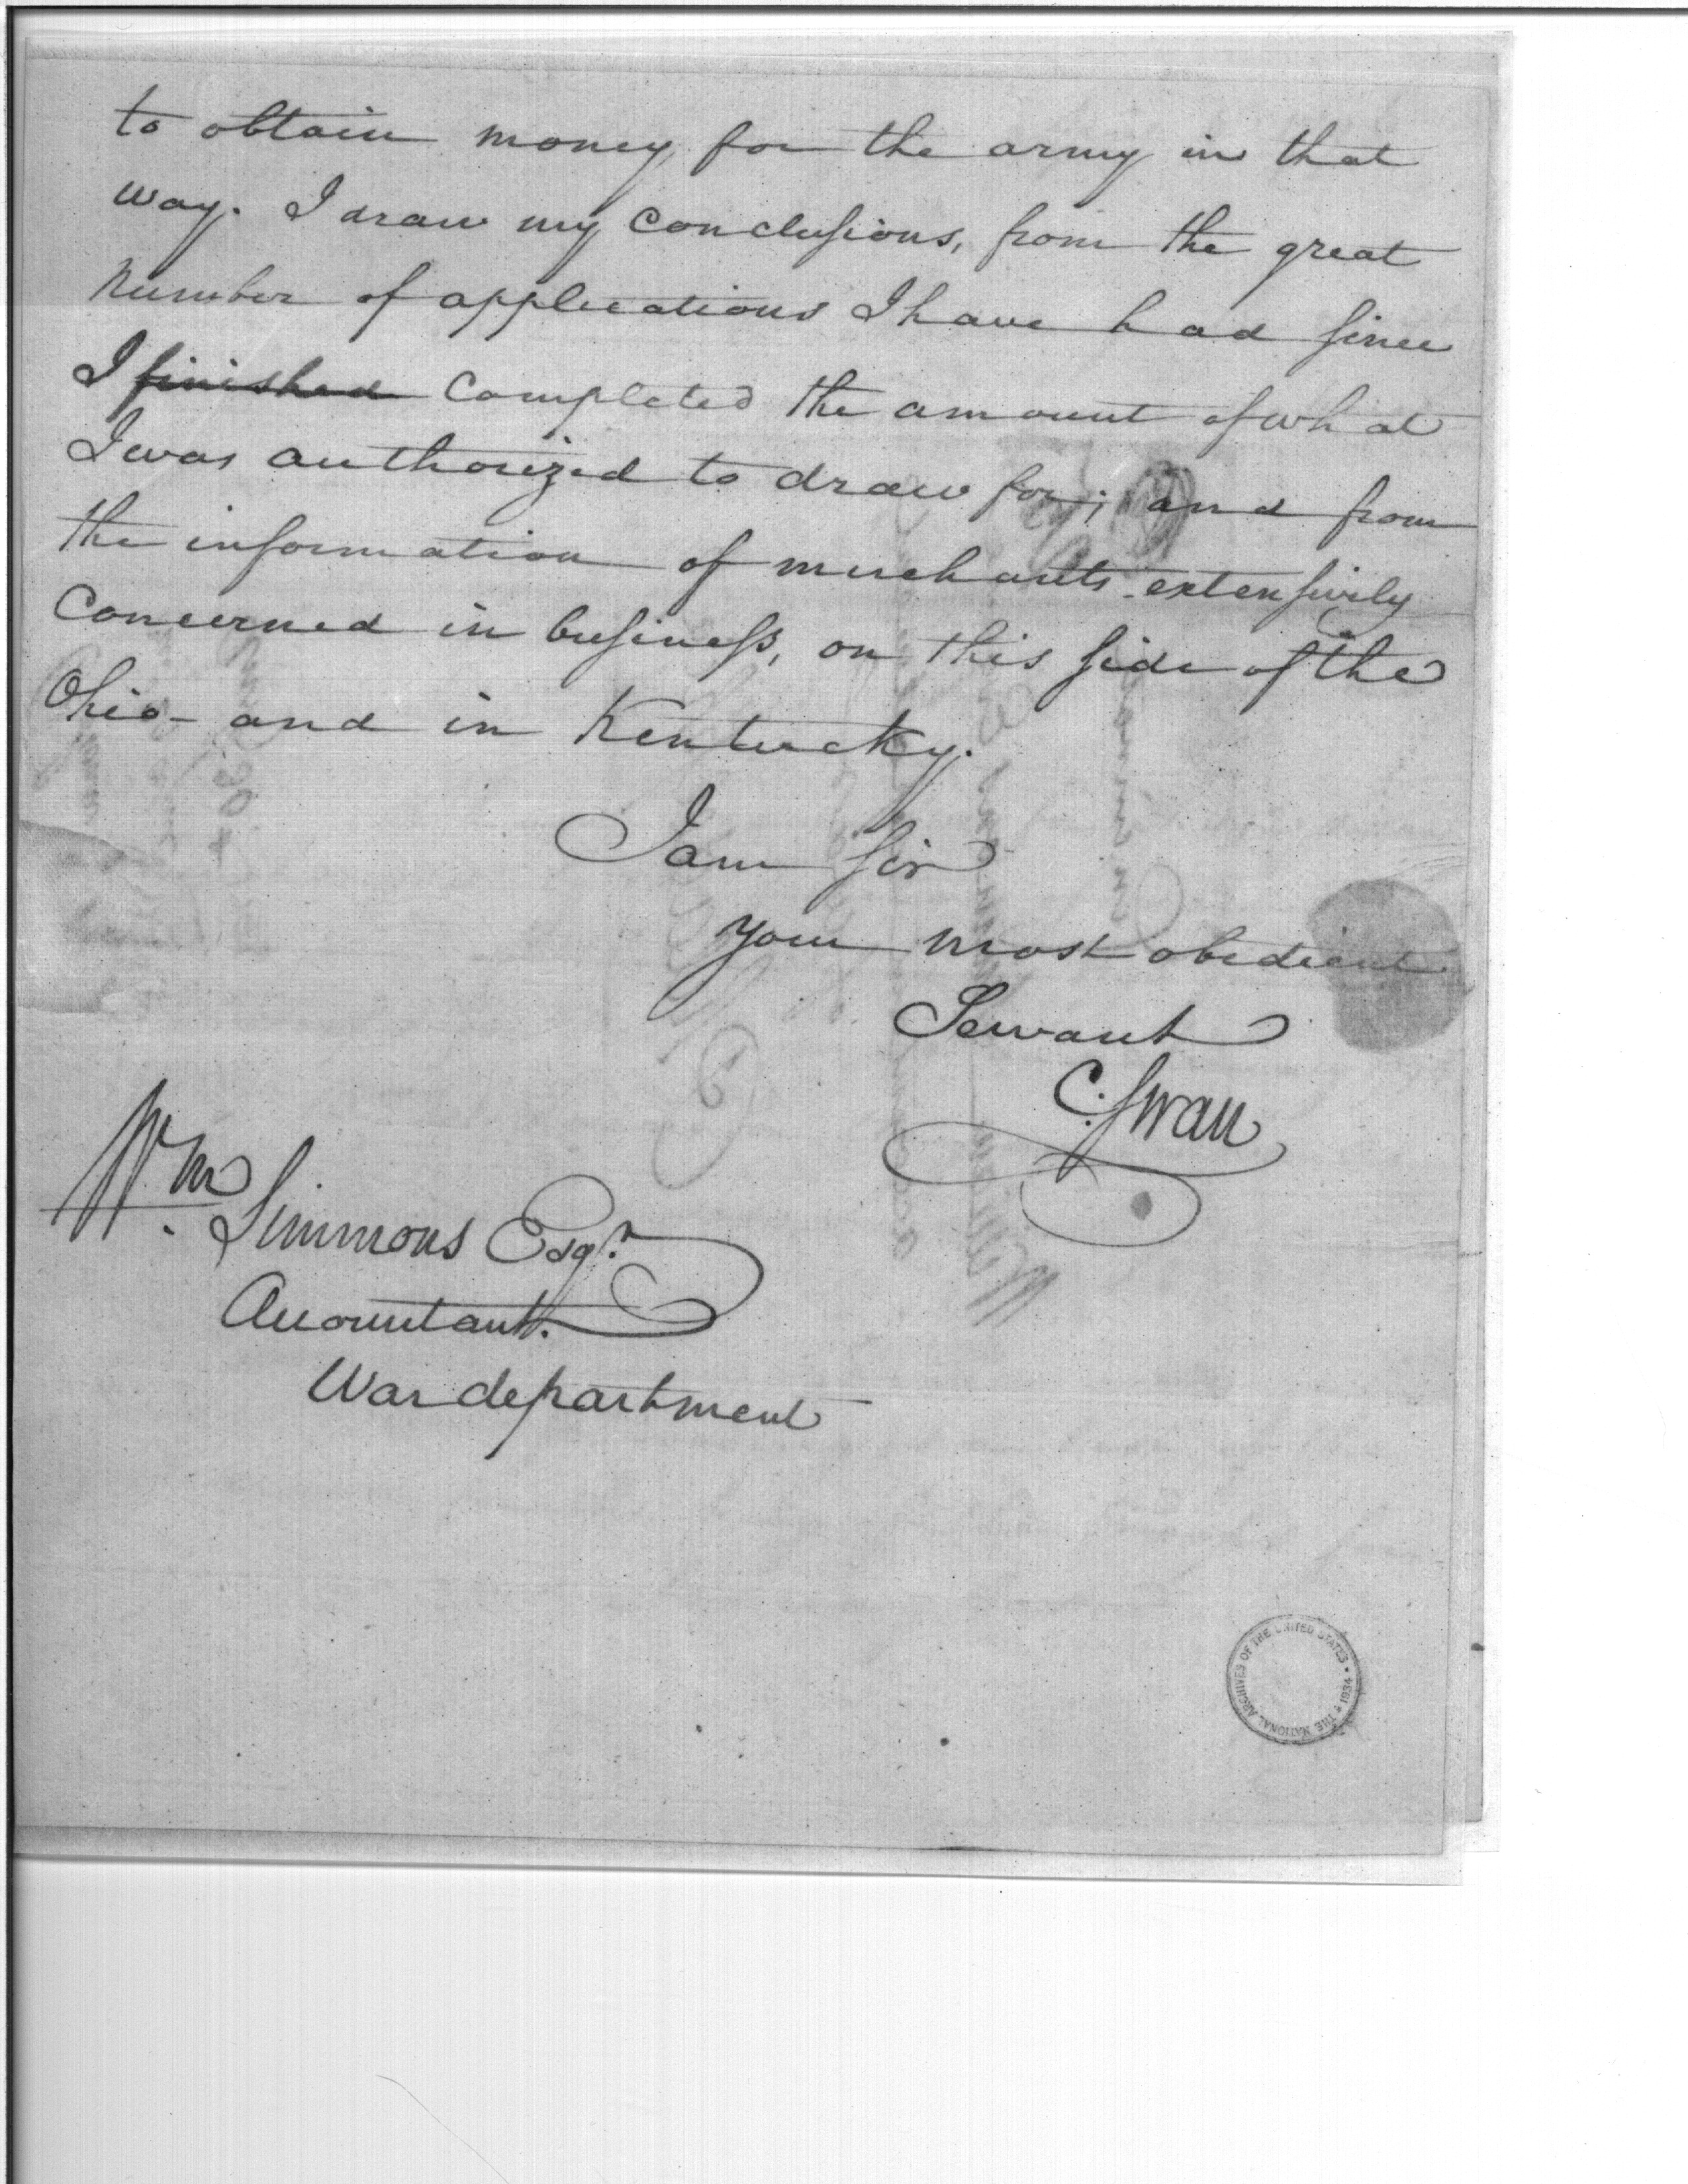 to obtain money for the army in that
way. I draw my Conclusions, from the great
Number of applications I have had since
I finished Completed the amount of what
I was authorized to draw for; and from
the information of merchants extensively
Concerned in business, on this side of the
Ohio - and in Kentucky.
I am Sir
your most obedient
Servant
C. Swan
Wm. Simmons Esqr.
Accountant.
War department
THE NATIONAL ARCHIVES OF THE UNITED STATES • 1934 •